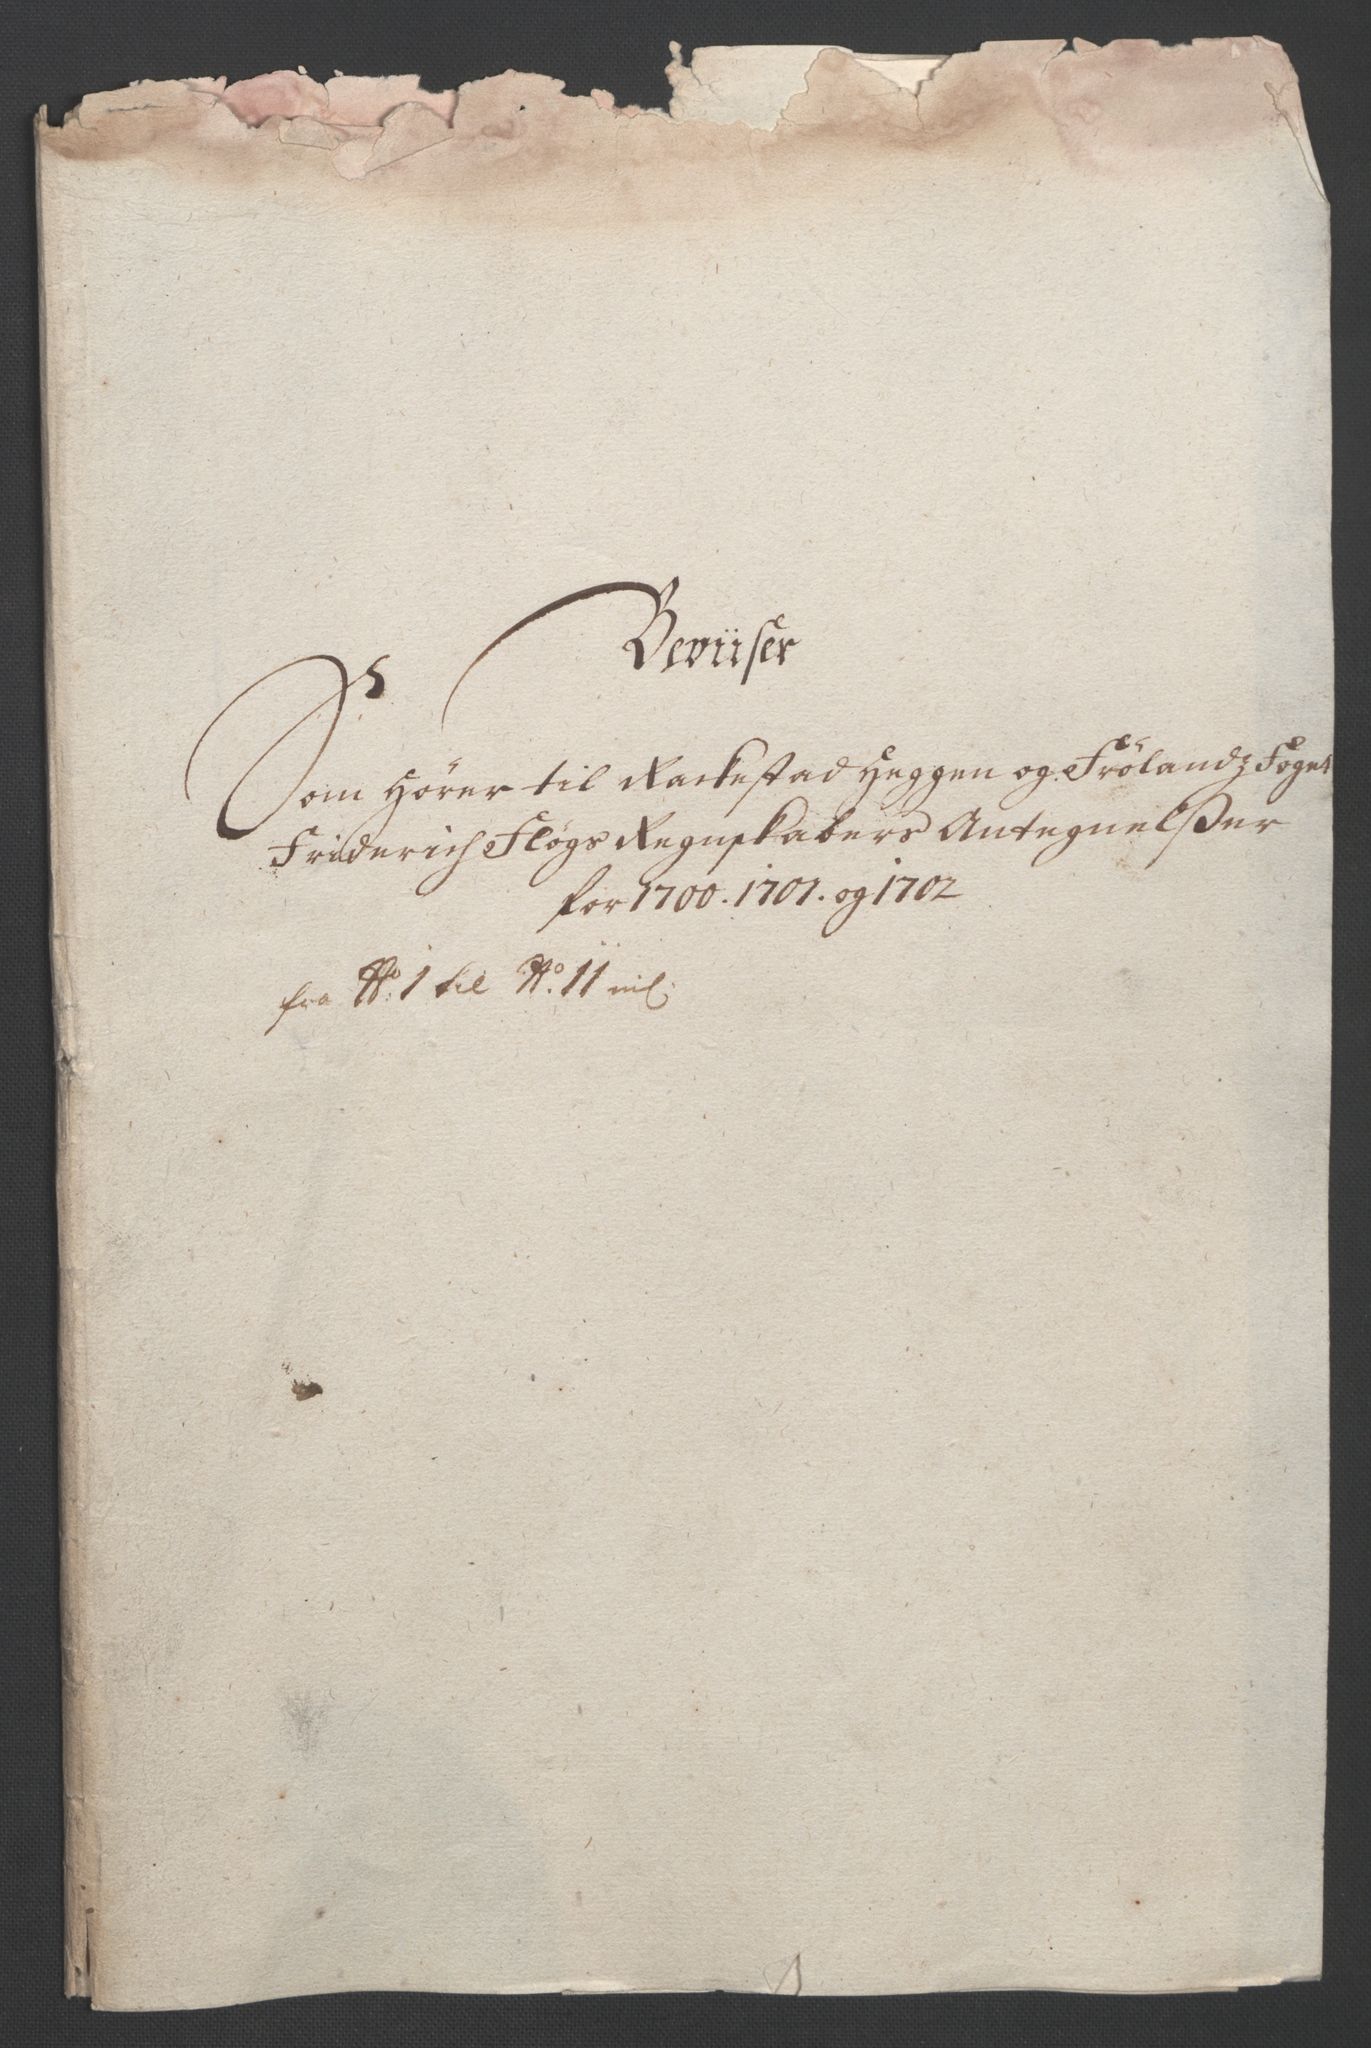 Beviiser
Som Hörer til Rackestad Heggen og Frölands Foget
Friderich Flögs Regnskabers Antegnelsser
for 1700. 1701. og 1702
fra No. 1 til No. 11 incl: